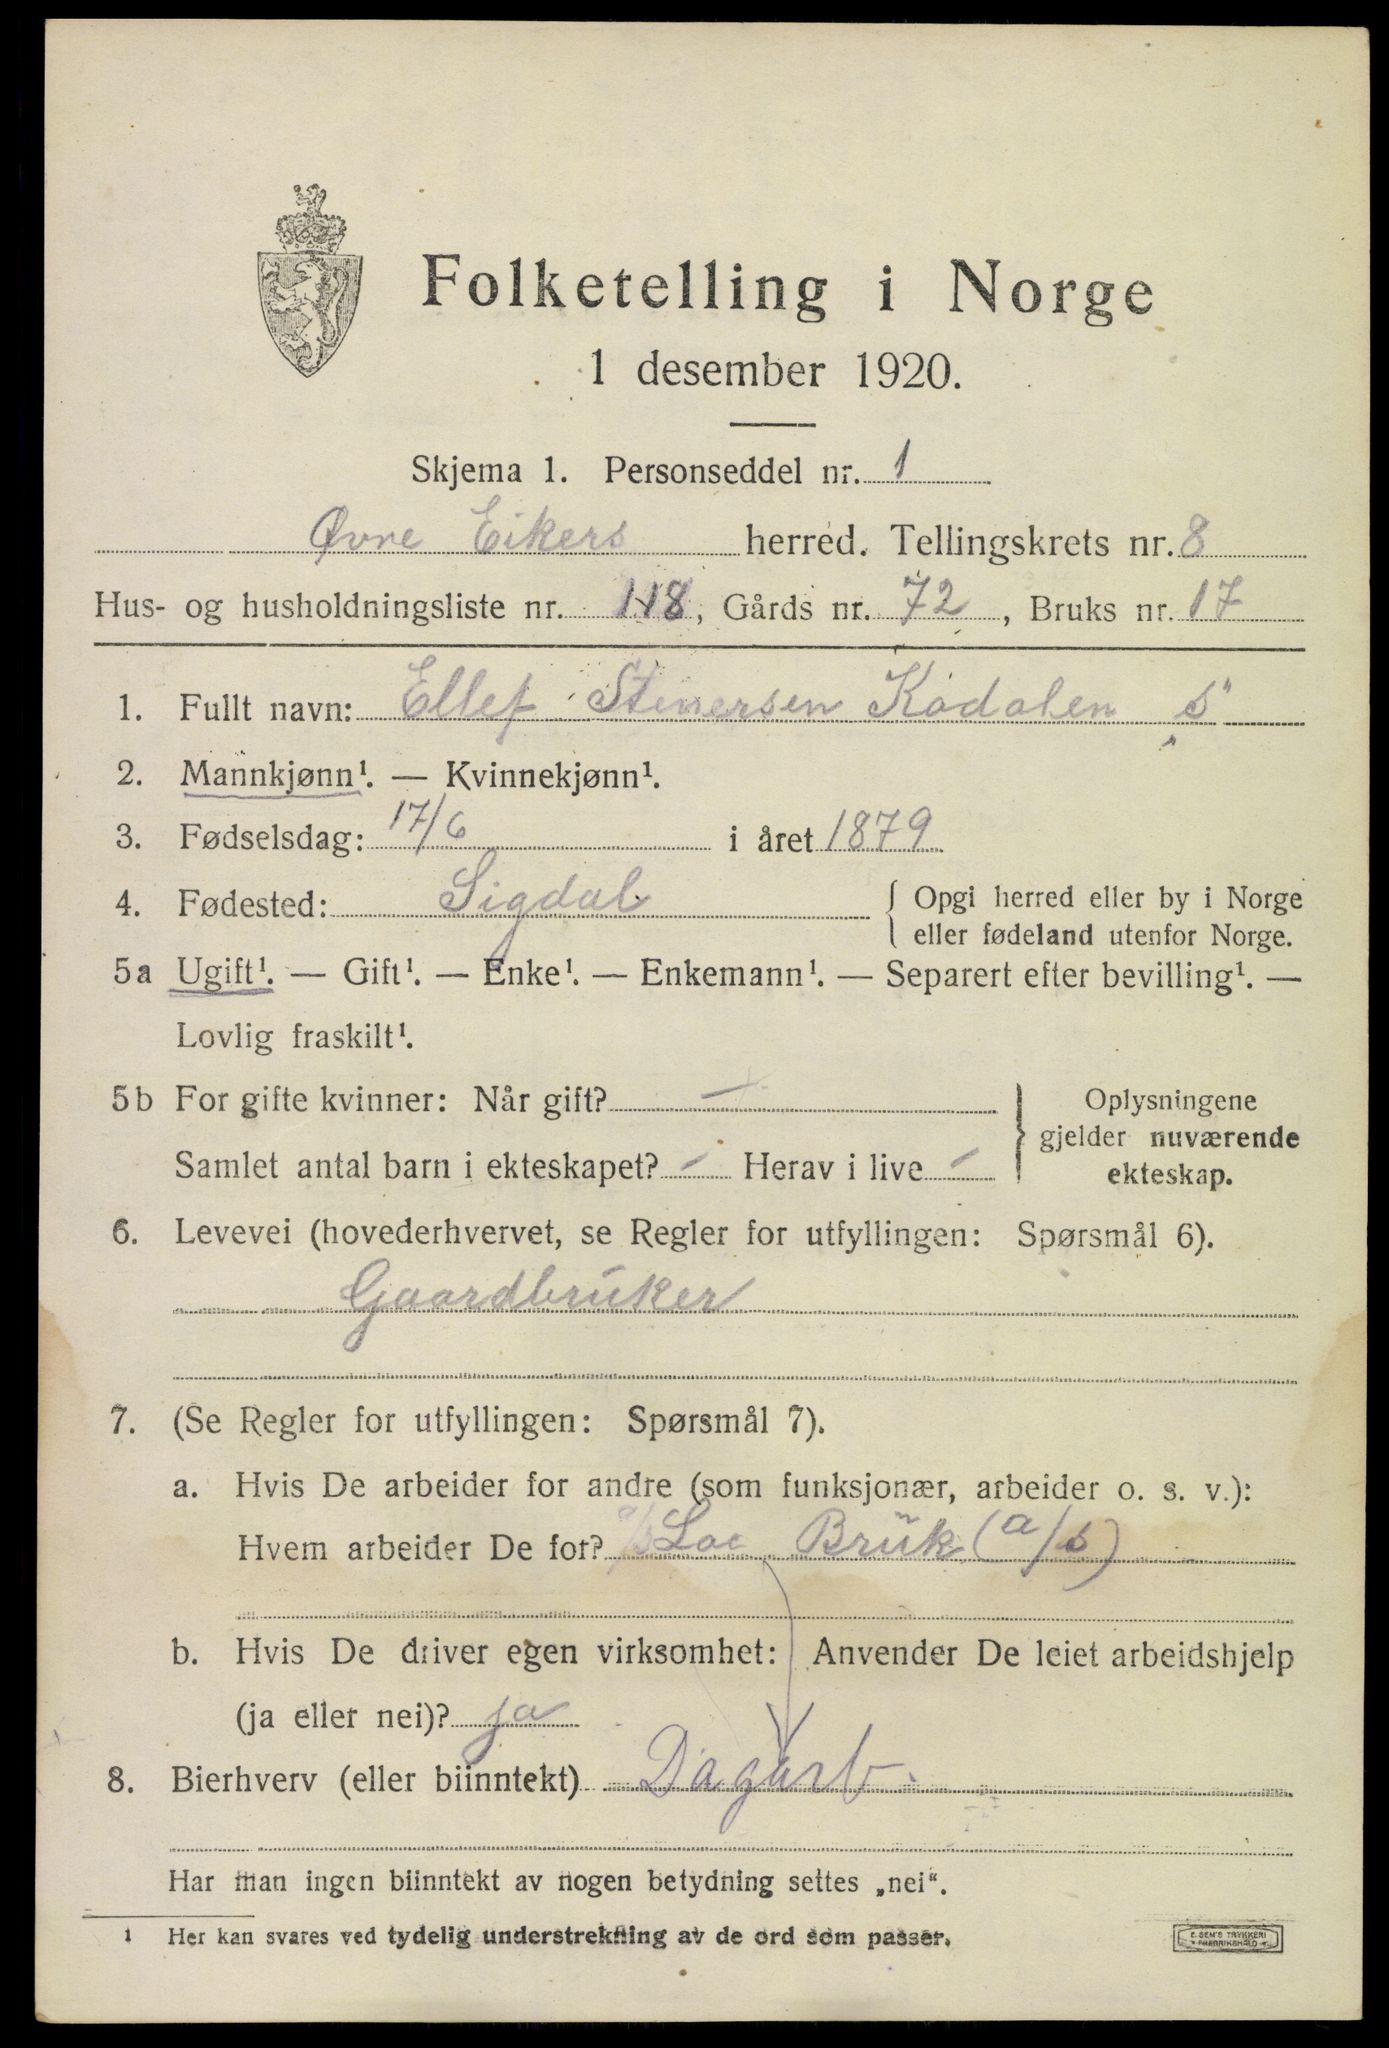 Folketelling i Norge
1 desember 1920.
Skjema 1. Personseddel nr. 1
Øvre Eikers herred. Tellingskrets nr. 8
Hus- og husholdningsliste nr. 118, Gårds nr. 72, Bruks nr. 17
1. Fullt navn: Ellef Stenersen Kodalen s
2. Mannkjønn¹. — Kvinnekjønn¹.
3. Fødselsdag: 17/6 i året 1879
4. Fødested: Sigdal { Opgi herred eller by i Norge
eller fødeland utenfor Norge.
5a Ugift¹. — Gift¹. — Enke¹. — Enkemann¹. — Separert efter bevilling¹. —
Lovlig fraskilt¹.
5b For gifte kvinner: Når gift? —
Samlet antal barn i ekteskapet? — Herav i live —
} Oplysningene
gjelder nuværende
ekteskap.
6. Levevei (hovederhvervet, se Regler for utfyllingen: Spørsmål 6).
Gaardbruker
7. (Se Regler for utfyllingen: Spørsmål 7).
a. Hvis De arbeider for andre (som funksjonær, arbeider o. s. v.):
Hvem arbeider De for? Loe Brŭk (a/s)
b. Hvis De driver egen virksomhet: Anvender De leiet arbeidshjelp
(ja eller nei)? ja
8. Bierhverv (eller biinntekt) Dagarb.
Har man ingen biinntekt av nogen betydning settes „nei“.
¹ Her kan svares ved tydelig understrekning av de ord som passer.
E. SEM'S TRYKKERI
FREDRIKSHALD